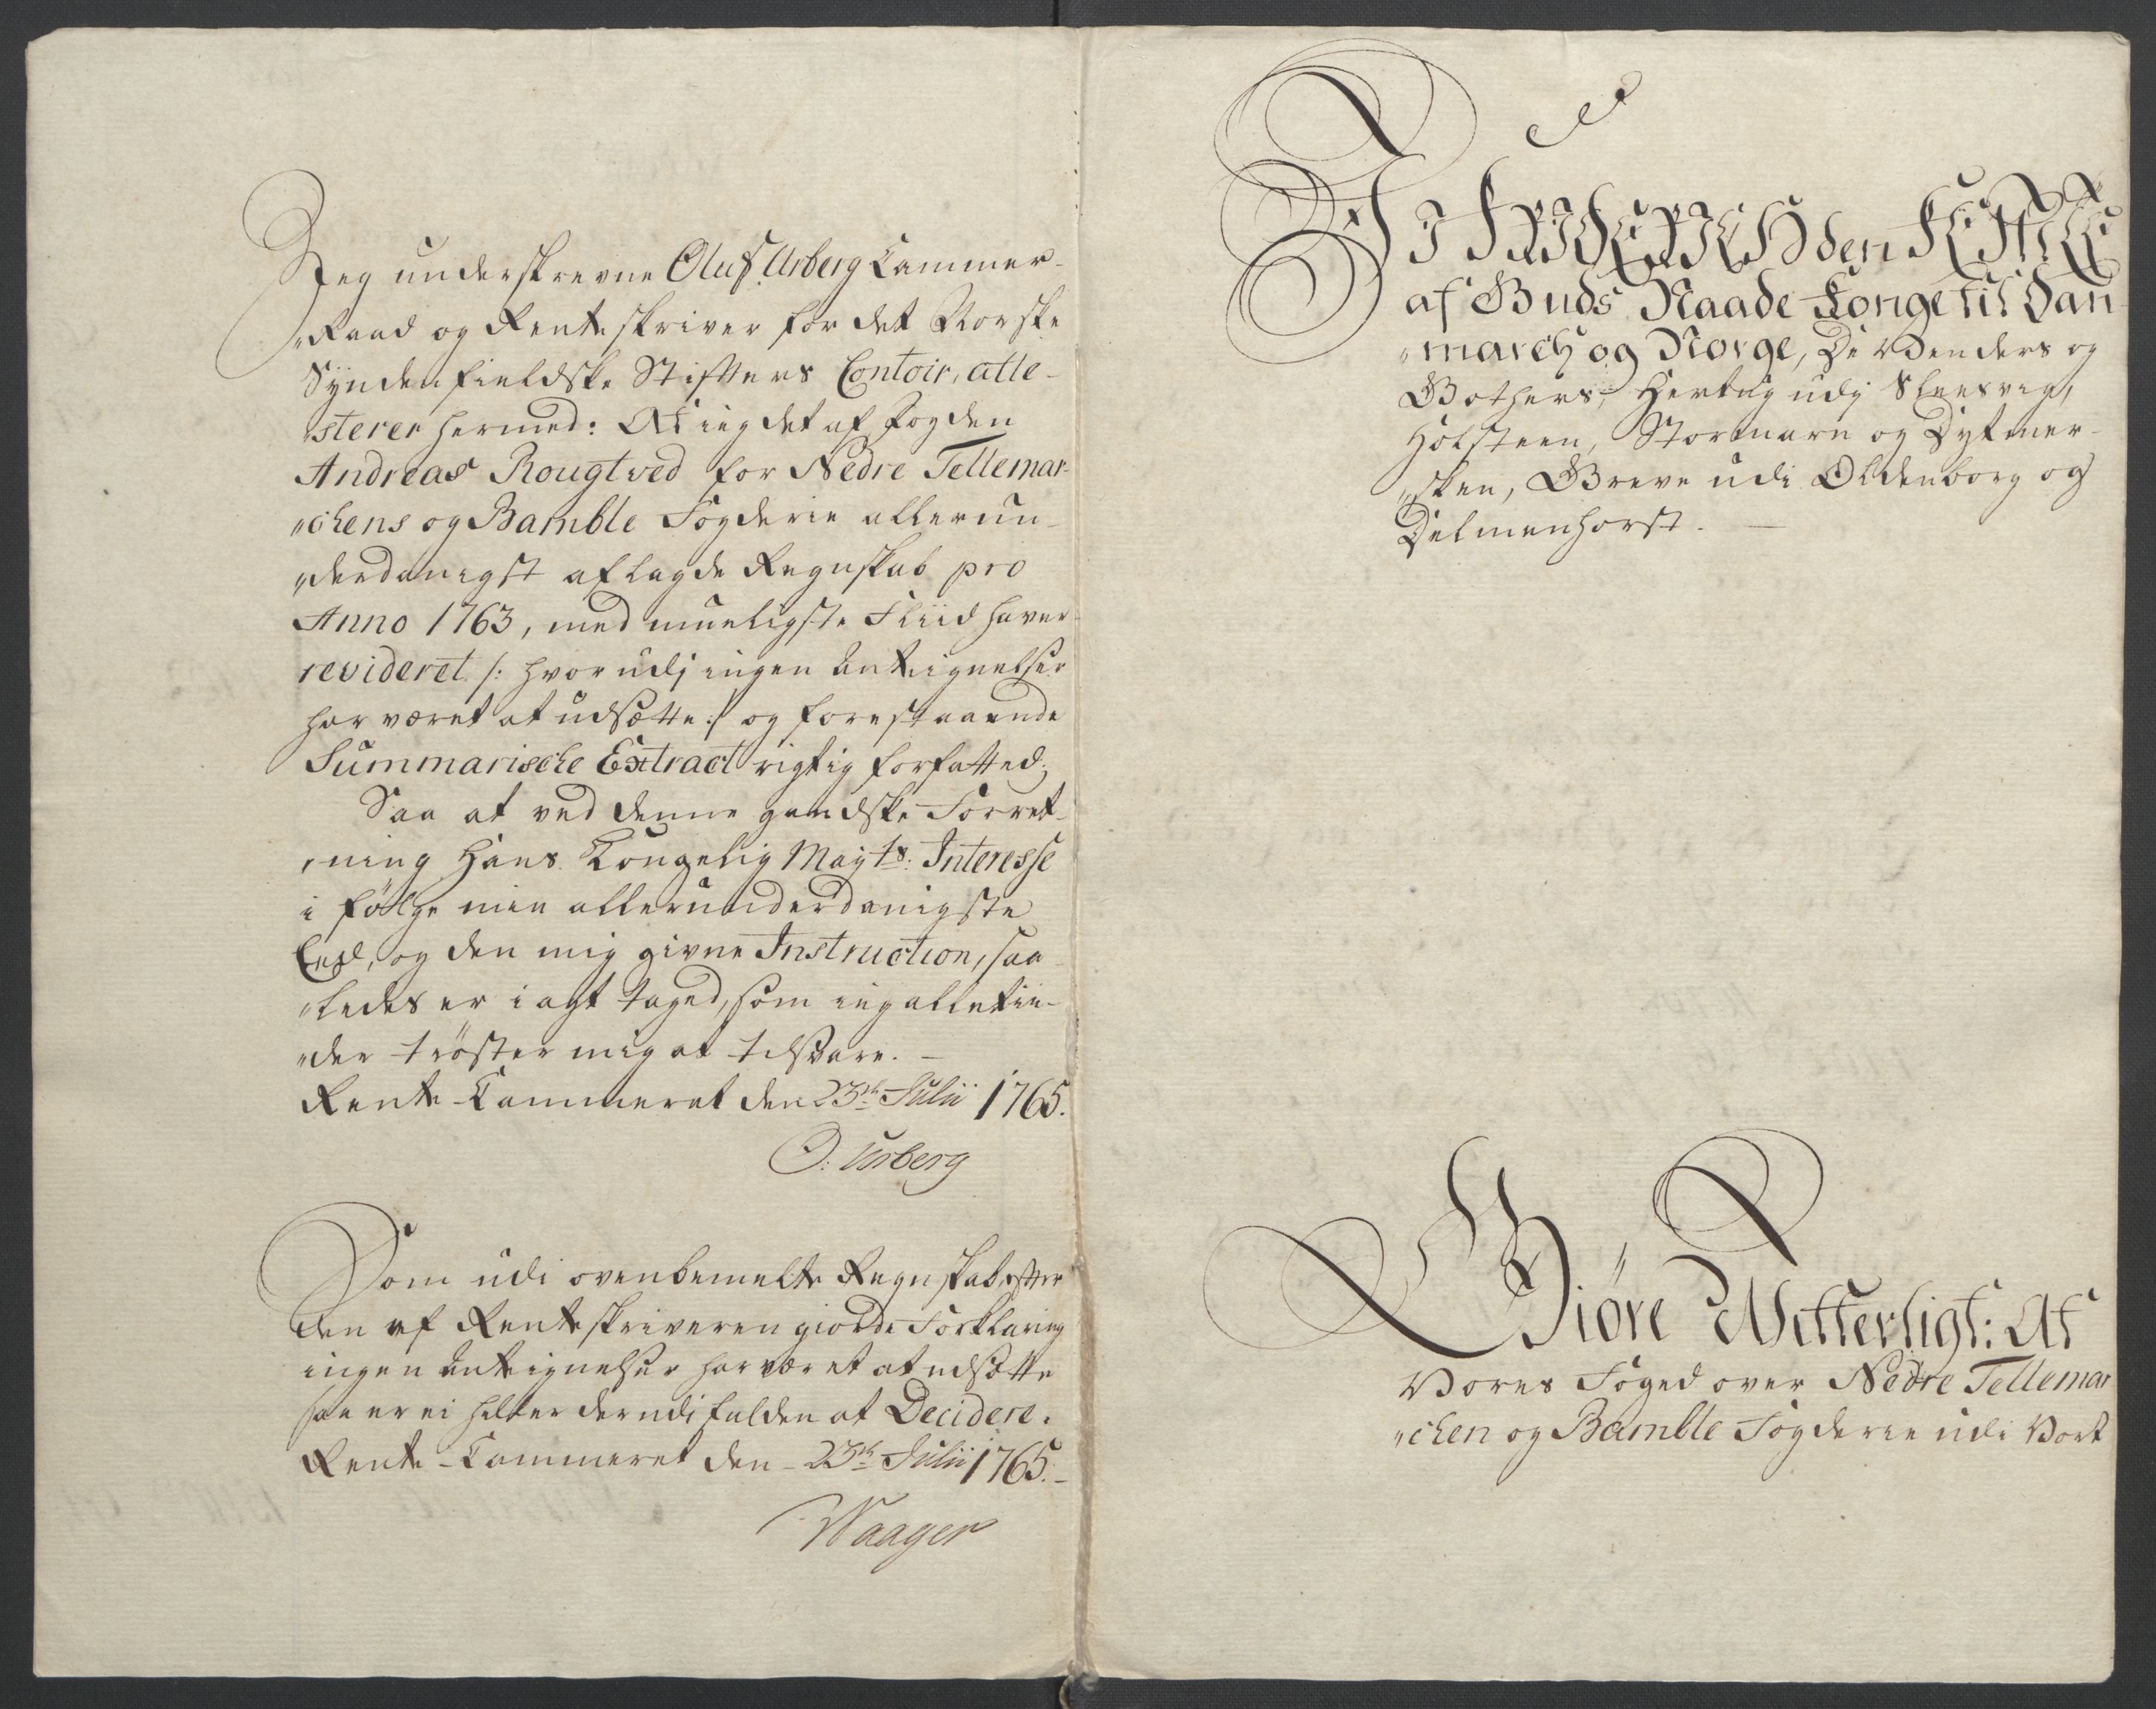 Jeg underskrevne Oluf Urberg Cammer-
„Raad og Rente skriver for det Norske
Syndenfieldske Stifters Contoir, atte-
„sterer hermed: At ieg det af Fogden
Andreas Rougtved for Nedre Tellemar-
„chens og Bamble Fogderie allerun-
„derdanigst aflagde Regnskab pro
Anno 1763, med mueligste Fliid haver
revideret /: hvorudj ingen Antegnelser
har været at udsætte :/ og forestaaende
Summarische Extract rigtig forfatted;
Saa at ved denne gandske Forret-
„ning Hans Kongelig Mayts: Interesse
i følge min allerunderdanigste
Eed, og den mig givne Instruction, saa-
„ledes er i agt taged, som ieg alletiie-
„der trøster mig at tilsvare. —
Rente-Cammeret den 23de Julii 1765.
O: Urberg
Som udi ovenbemelte Regnskab efter
den af Rente skriveren giorde Forklaring
ingen Antegnelser har været at udsætte
saa er ei heller derudi falden at Decidere.
Rente-Cammeret den 23de Julii 1765.-
Waager
VI FRIDERICH den FEMTE
af Guds Naade Konge til Dan
„march og Norge, De Wenders og
Gothers, Hertug udj Sleesvig,
Holsteen, Stormarn og Dytmer-
„sken, Greve udi Oldenborg og
Delmenhorst. —
Giøre Witterligt: At
Vores Foged over Nedre Tellemar
„chen og Bamble Fogderie udi Vort